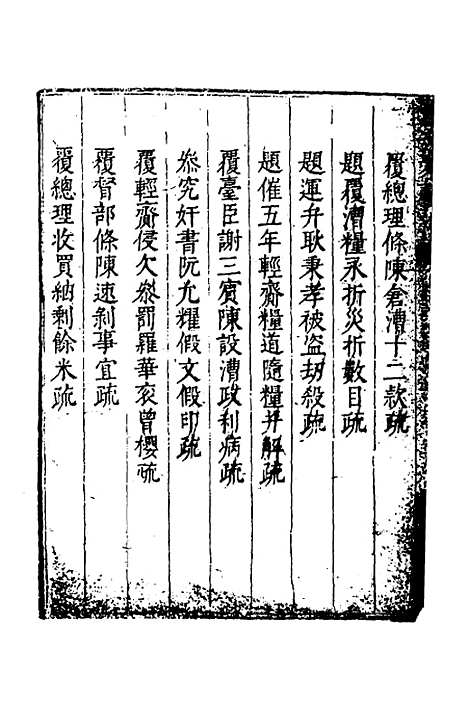 覆總理條陳倉漕十二款疏
題覆漕糧永折災折數目疏
題運弁耿秉孝被盜刼殺疏
題催五年輕齎糧道隨糧并解疏
覆臺臣謝三賓陳設漕政利病疏
叅究奸書阮允耀假文假印疏
覆輕齎侵欠叅罰羅華衮曾櫻疏
覆督部條陳速剝事宜疏
覆總理收買納剩餘米疏